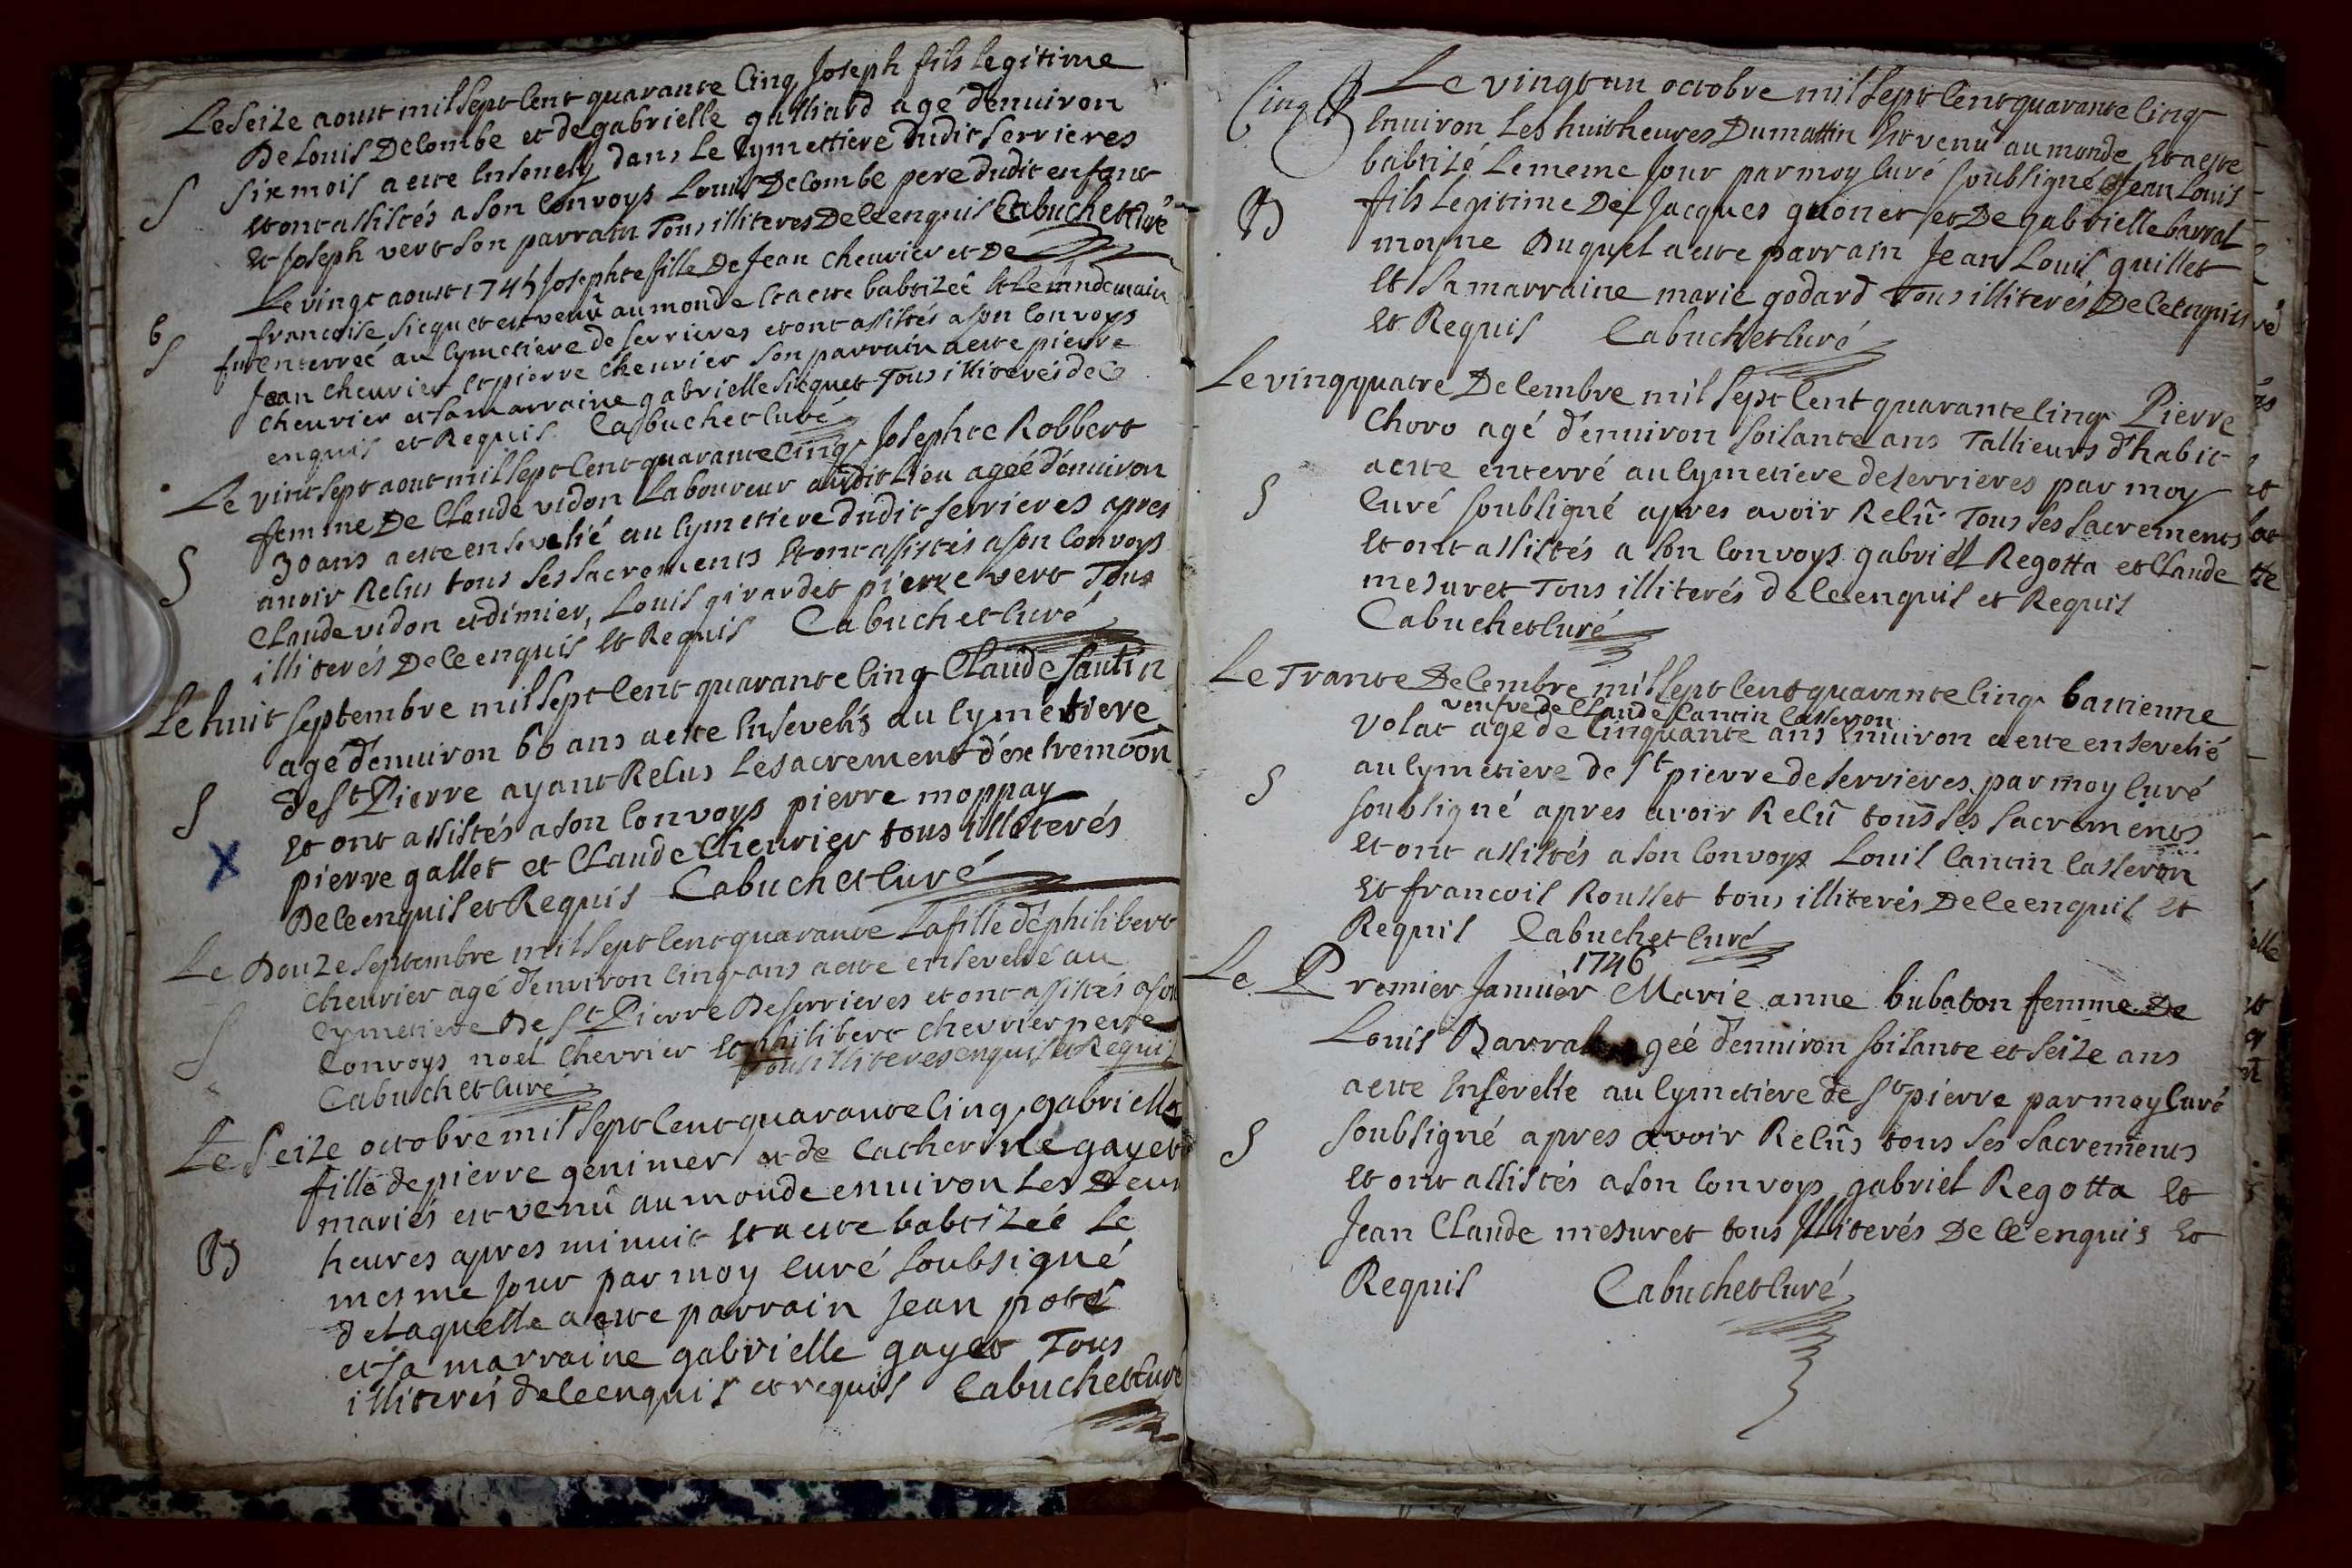 Le seize aoust mil sept cent quarante cinq Joseph fils legitime
De Louis Decombe et de gabrielle galliard agé d'enuiron
S
six mois a este Enseuely dans le Cymettiere dudit serrieres
et ont assistés a son Convoys Louis Decombe pere dudit enfant
et Joseph vert son parrain Tous illiteres De ce enquis Cabuchet Curé
Le vingt aoust 1745 Josephte fille De Jean cheurier et De
B
S
francoise sicquet est venu au monde et a este babtizeé et le landemain
fut enterreé au Cymetiere de serrieres et ont assistés a son Convoys
Jean cheurier et pierre cheurier son parrain a este pierre
cheurier et sa marraine gabrielle sicquet Tous illiterés de ce
enquis et Requis Cabuchet curé
Le vint sept aout mil sept cent quarante cinq Josephte Robbert
femme De Claude vidon Laboureur audit lieu ageé d'enuiron
S
30 ans a este enseuelié au Cymetiere dudit serrieres apres
auoir Relus tous ses sacrements et ont assistés a son Convoys
Claude vidon et dimier, Louis girardet pierre vert Tous
illiterés De ce enquis et Requis Cabuchet curé
Le huit septembre mil sept cent quarante cinq Claude Santin
agé d'enuiron 60 ans a este Enseuelis au Cymetiere
S
de St Pierre ayant Relus Le sacrement d'extremoon
et ont assistés a son Convoys pierre moppay
X
pierre gallet et Claude Cheurier tous illiterés
De ce enquis et Requis Cabuchet curé
Le Douze septembre mil sept cent quarante La fille de philibert
Cheurier agé d'enuiron cinq ans a este enseuelié au
S
Cymetiere De St Pierre De serrieres et ont assistés a son
Convoys noel Chevrier et philibert Chevrier pere
Tous illiteres enquis et Requis
Cabuchet curé
Le seize octobre mil sept cent quarante cinq, gabrielle
fille de pierre genimer et de Catherine gayet
mariés est venû au monde enuiron Les Deux
B
heures apres minuit et a este babtizeé Le
mesme jour par moy curé soubsigné
de laquelle a este parrain Jean poté
et sa marraine gabrielle gayet Tous
illiterés de ce enquis et requis Cabuchet curé
Cinq
Le vingt un octobre mil sept cent quarante cinq
enuiron Les huit heures Du mattin est venu au monde et a este
babtizé Le meme Jour par moy Curé soubsigné Jean Louis
B
fils Legitime De Jacques guonet et De gabrielle barral
moyne Duquel a este parrain Jean Louis guillet
et sa marraine marie godard Tous illiterés De ce enquis
et Requis Cabuchet curé
Le vingt quatre Decembre mil sept cent quarante cinq Pierre
Choro agé d'enuiron soisante ans Tallieurs d'habit
a este enterré au Cymetiere de serrieres par moy
S
Curé soubsigné apres avoir Relû Tous ses sacrements
et ont assistés a son Convoys gabriel Regotta et Claude
mesuret Tous illiterés de ce enquis et Requis
Cabuchet curé
Le Trante Decembre mil sept cent quarante cinq battienne
veufve de Claude Cantin Casseron
Volat agé de Cinquante ans Enuiron a este ensevelié
au Cymetiere de St pierre de serrieres par moy curé
S
soubsigné apres avoir Relû tous ses sacrements
et ont assistés a son Convoys Louis Cantin Casseron
et francois Rousset tous illiterés De ce enquis et
Requis Cabuchet curé
1746
Le Premier Januier Marie anne bubaton femme De
Louis Barral ageé d'enuiron soisante et seize ans
a este Ensevelie au Cymetiere de St pierre par moy Curé
S
soubsigné apres avoir Relûs tous ses sacrements
et ont assistés a son Convoys gabriel Regotta et
Jean Claude mesuret tous Illiterés De ce enquis et
Requis Cabuchet curé